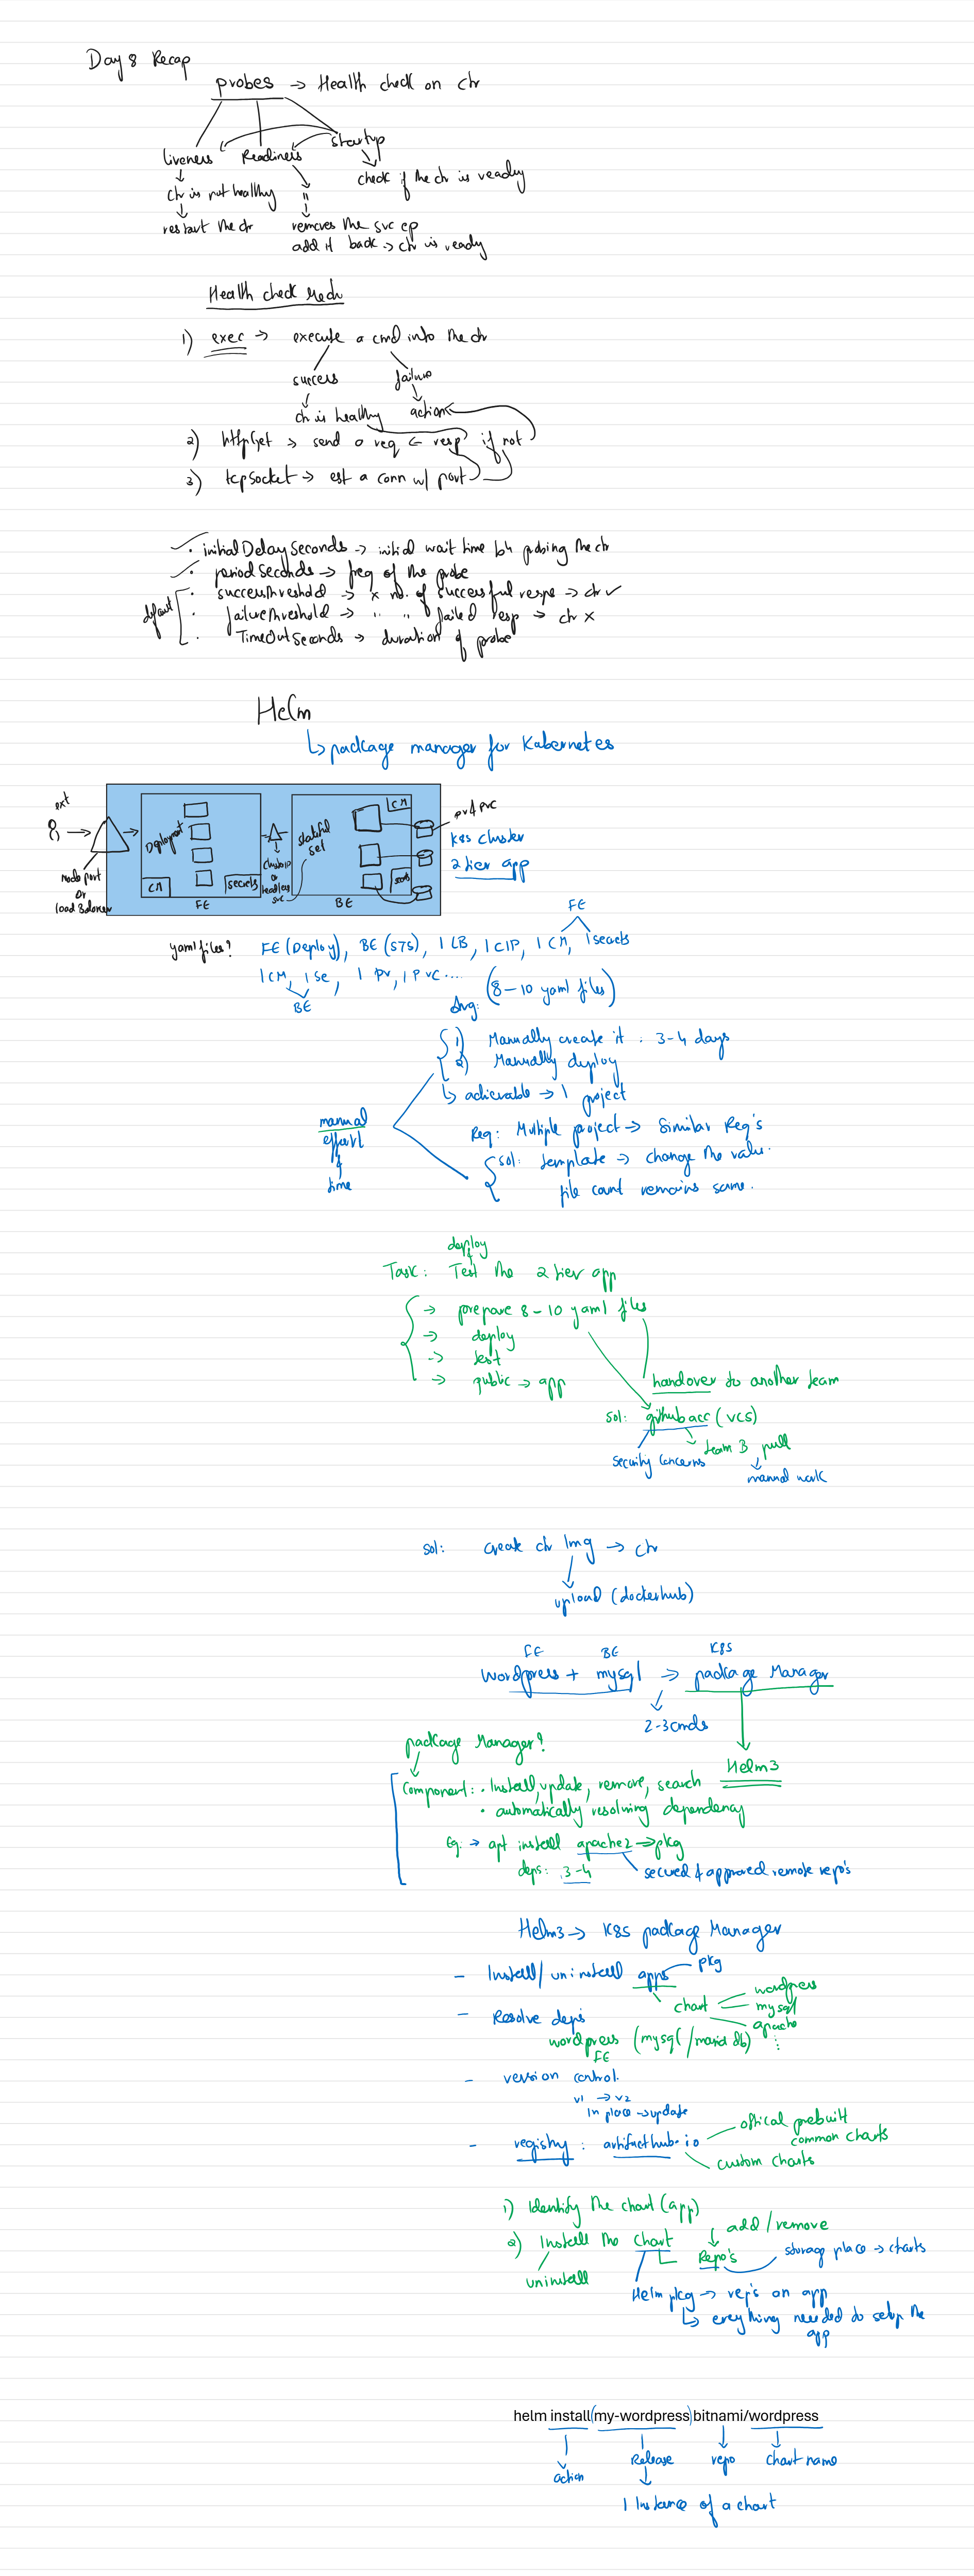 Day 8 Recap
probes → Health check on ctr
liveness Readiness startup
check if the ctr is ready
ctr is not healthy "
restart the ctr removes the svc ep
add it back → ctr is ready
Health check Mech
1) exec → execute a cmd into the ctr
success failure
ctr is healthy action
2) httpGet → send a req ← resp if not
3) tcpSocket → est a conn w/ port
• initialDelaySeconds → initial wait time b4 probing the ctr
• periodSeconds → freq of the probe
default • successthreshold → x no. of successful resps → ctr ✓
• failurethreshold → " " failed resp → ctr x
• TimeOutSeconds → duration of probe
Helm
↳ package manager for Kubernetes
ext
Deployment
CM
secrets
FE
node port
or
load Balancer
clusterip
or
headless
svc
stateful
set
CM
BE
pv & pvc
K8s cluster
2 tier app
FE
yaml files? FE (Deploy), BE (STS), 1 LB, 1 CIP, 1 CM, 1 secrets
1 CM, 1 se, 1 pv, 1 pvc ....
BE
Avg: (8-10 yaml files)
1) Manually create it : 3-4 days
2) Manually deploy
↳ achievable → 1 project
manual
effort
&
time
Req: Multiple project → Similar Req's
sol: template → change the value.
file count remains same.
deploy
Task: Test the 2 tier app
→ prepare 8-10 yaml files
→ deploy
→ test
→ public → app
handover to another team
sol: github acc (vcs)
security concerns
team B pull
manual work
sol: create ctr Img → ctr
upload (dockerhub)
FE BE K8S
wordpress + mysql → package Manager
2-3 cmds
package Manager?
Helm3
Component: • Install, update, remove, search
• automatically resolving dependency
Eg: → apt install apache2 → pkg
deps: 3-4
secured & approved remote repo's
Helm3 → K8s package Manager
- Install/uninstall apps pkg
chart
wordpress
mysql
apache
- Resolve deps
wordpress (mysql/mariadb)
FE
- version control.
v1 → v2
In place → update
- registry : artifacthub.io
offical prebuilt
common charts
custom charts
1) Identify the chart (app)
2) Install the chart
uninstall
add/remove
Repo's
storage place → charts
Helm pkg → rep's an app
↳ everything needed to setup the
app
helm install (my-wordpress) bitnami/wordpress
action Release repo chart name
1 Instance of a chart